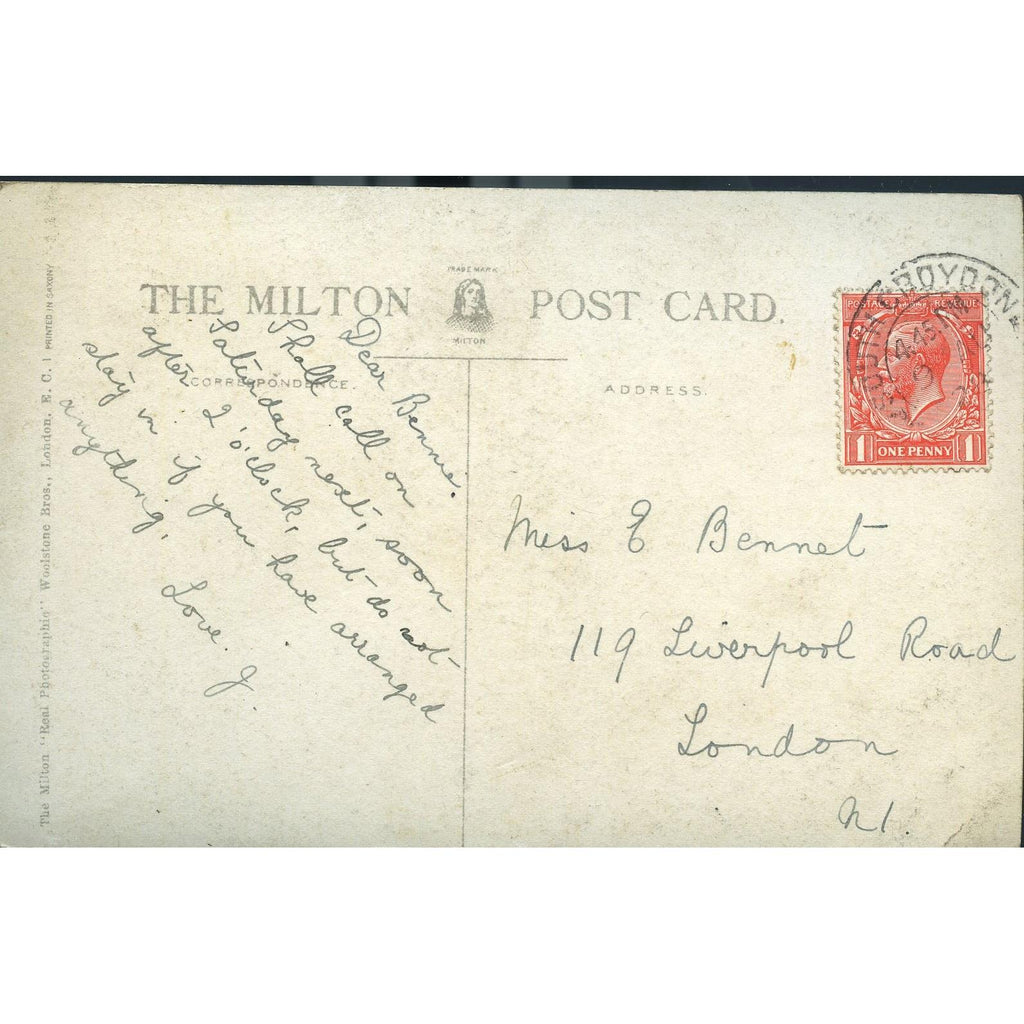 TRADE MARK
THE MILTON POST CARD.
MILTON
CORRESPONDENCE.
ADDRESS.
Dear Bennie.
Shall call on
Saturday next, soon
after 2 o'clock, but do not
stay in if you have arranged
anything.
Love. J.
Miss E Bennet
119 Liverpool Road
London
N1.
SOUTH CROYDON
4.45 PM
POSTAGE REVENUE
1 ONE PENNY 1
The Milton "Real Photographic" Woolstone Bros., London, E. C. 1 PRINTED IN SAXONY